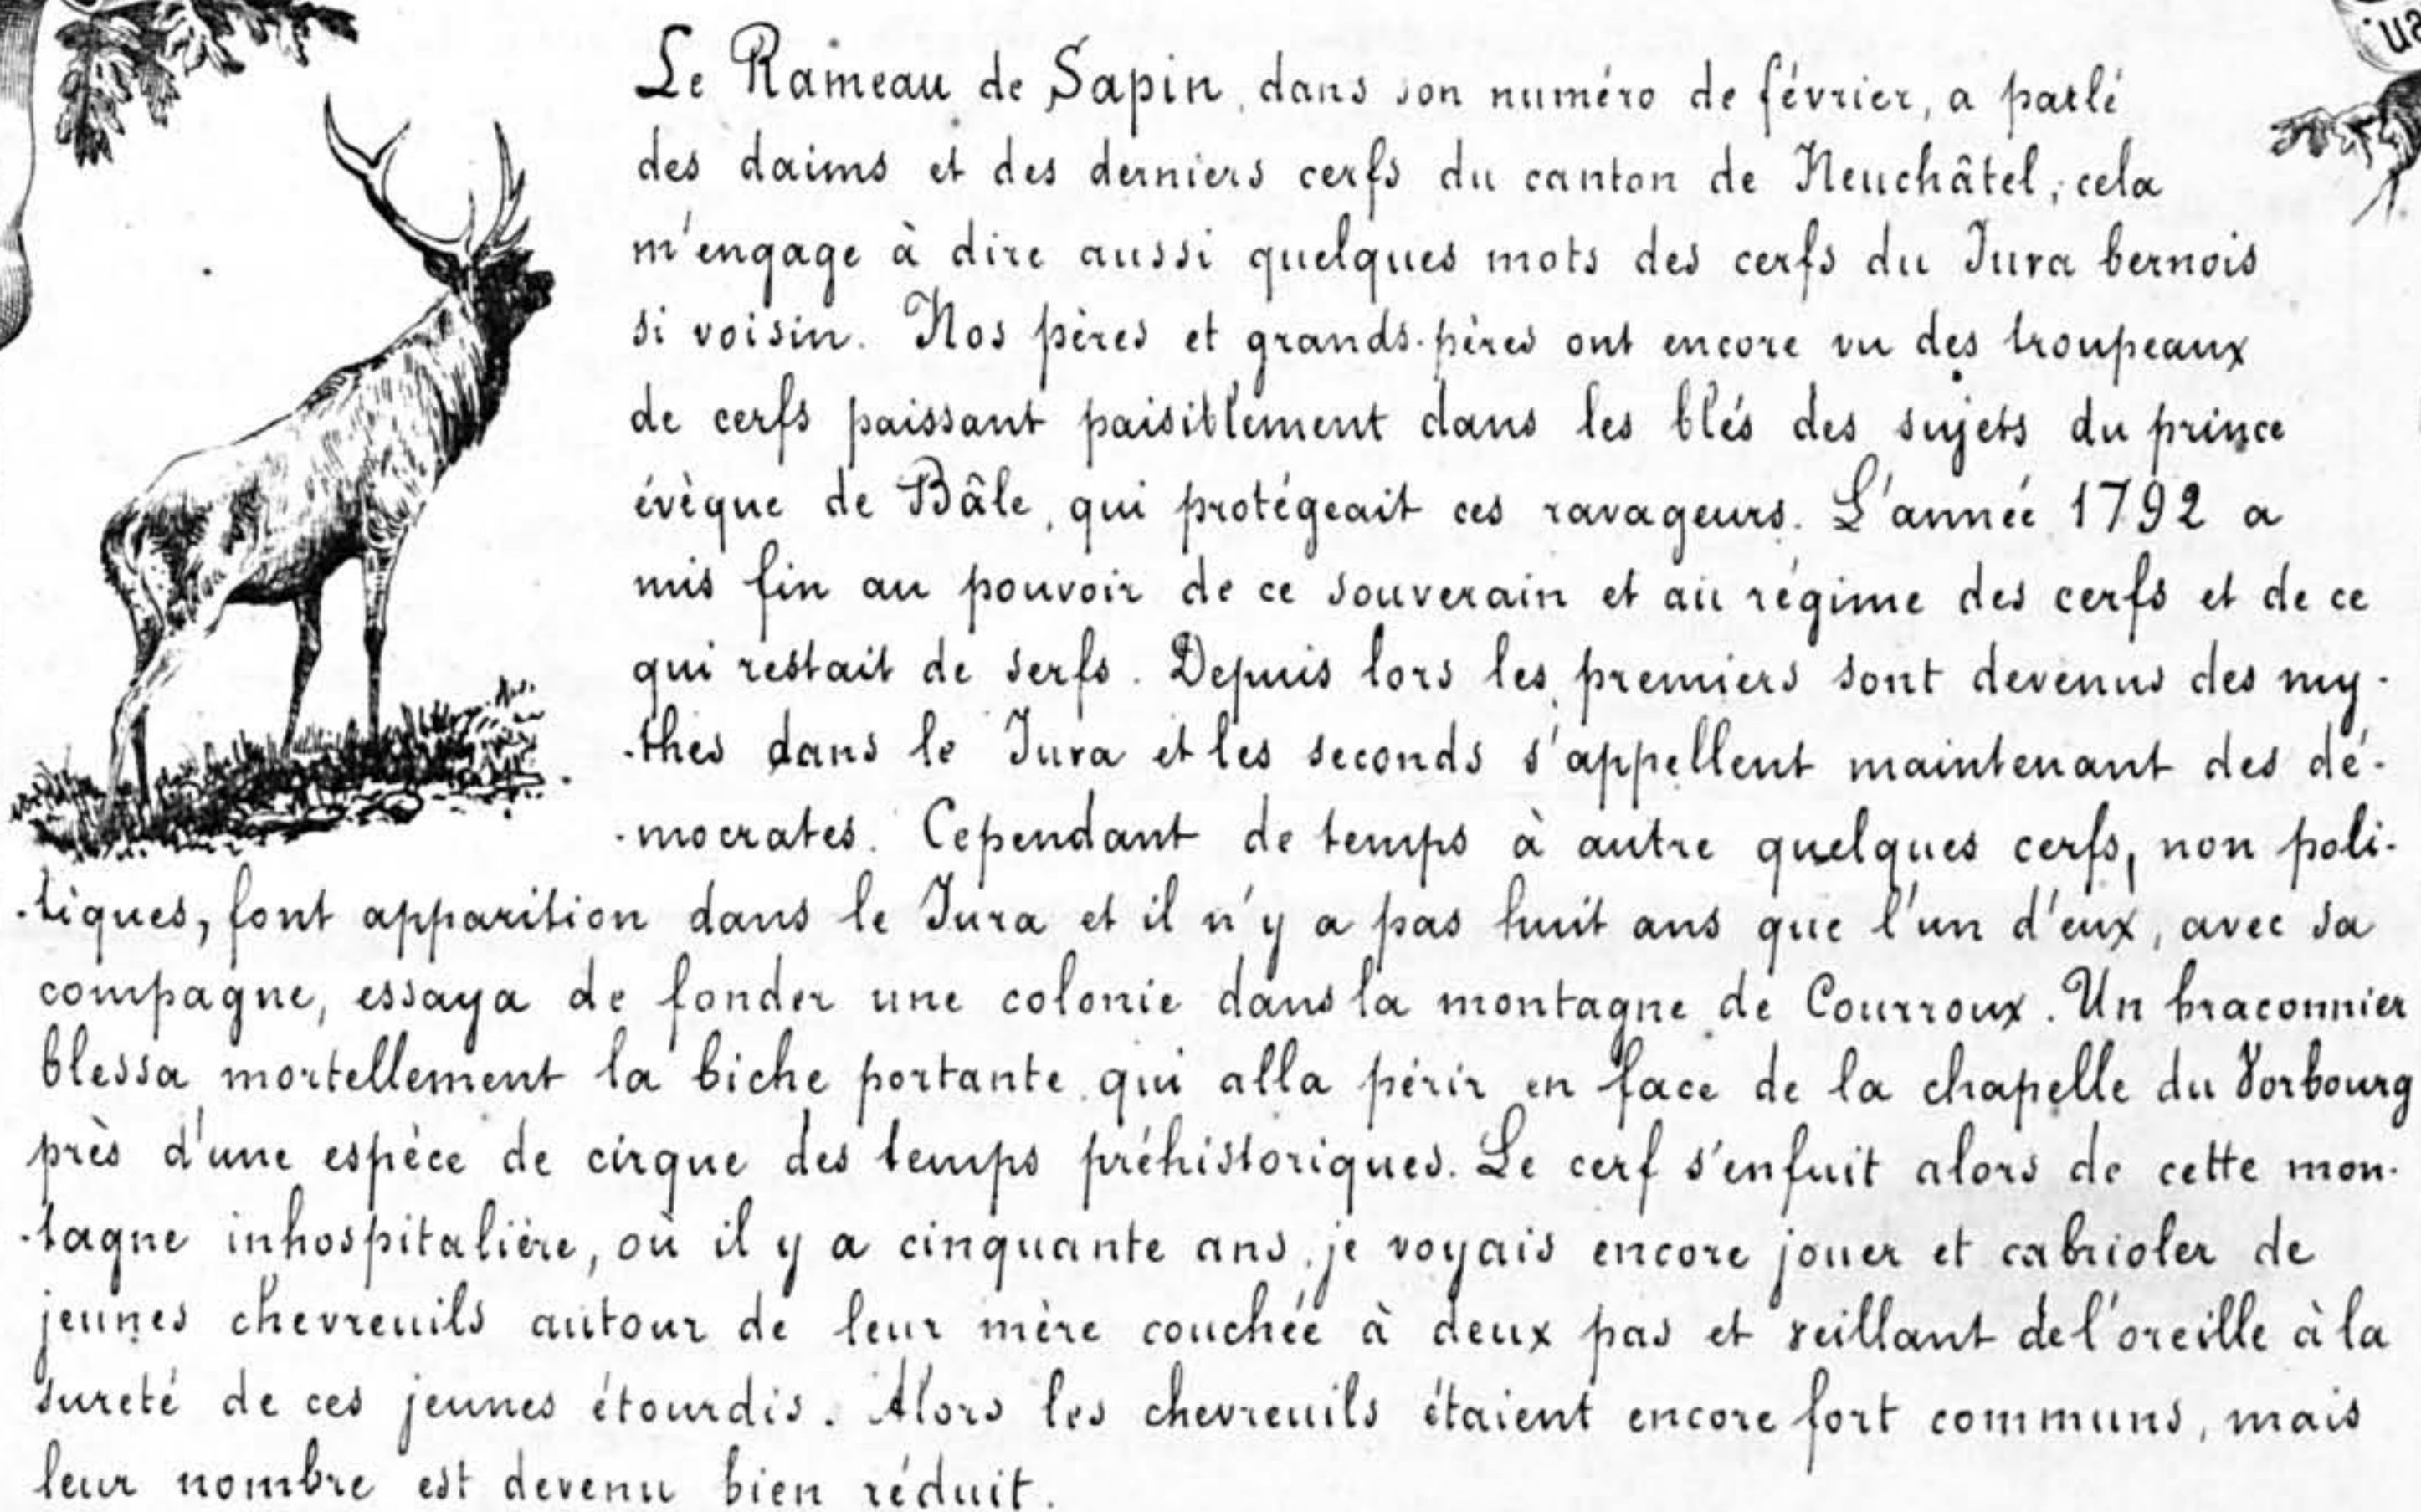 Le Rameau de Sapin, dans son numéro de février, a parlé
des daims et des derniers cerfs du canton de Neuchâtel; cela
m'engage à dire aussi quelques mots des cerfs du Jura bernois
si voisin. Nos pères et grands-pères ont encore vu des troupeaux
de cerfs paissant paisiblement dans les blés des sujets du prince
évèque de Bâle, qui protégeait ces ravageurs. L'année 1792 a
mis fin au pouvoir de ce souverain et au régime des cerfs et de ce
qui restait de serfs. Depuis lors les premiers sont devenus des my-
-thes dans le Jura et les seconds s'appellent maintenant des dé-
-mocrates. Cependant de temps à autre quelques cerfs, non poli-
-tiques, font apparition dans le Jura et il n'y a pas huit ans que l'un d'eux, avec sa
compagne, essaya de fonder une colonie dans la montagne de Courroux. Un braconnier
blessa mortellement la biche portante qui alla périr en face de la chapelle du Vorbourg
près d'une espèce de cirque des temps préhistoriques. Le cerf s'enfuit alors de cette mon-
-tagne inhospitalière, où il y a cinquante ans, je voyais encore jouer et cabrioler de
jeunes chevreuils autour de leur mère couchée à deux pas et veillant de l'oreille à la
sureté de ces jeunes étourdis. Alors les chevreuils étaient encore fort communs, mais
leur nombre est devenu bien réduit.